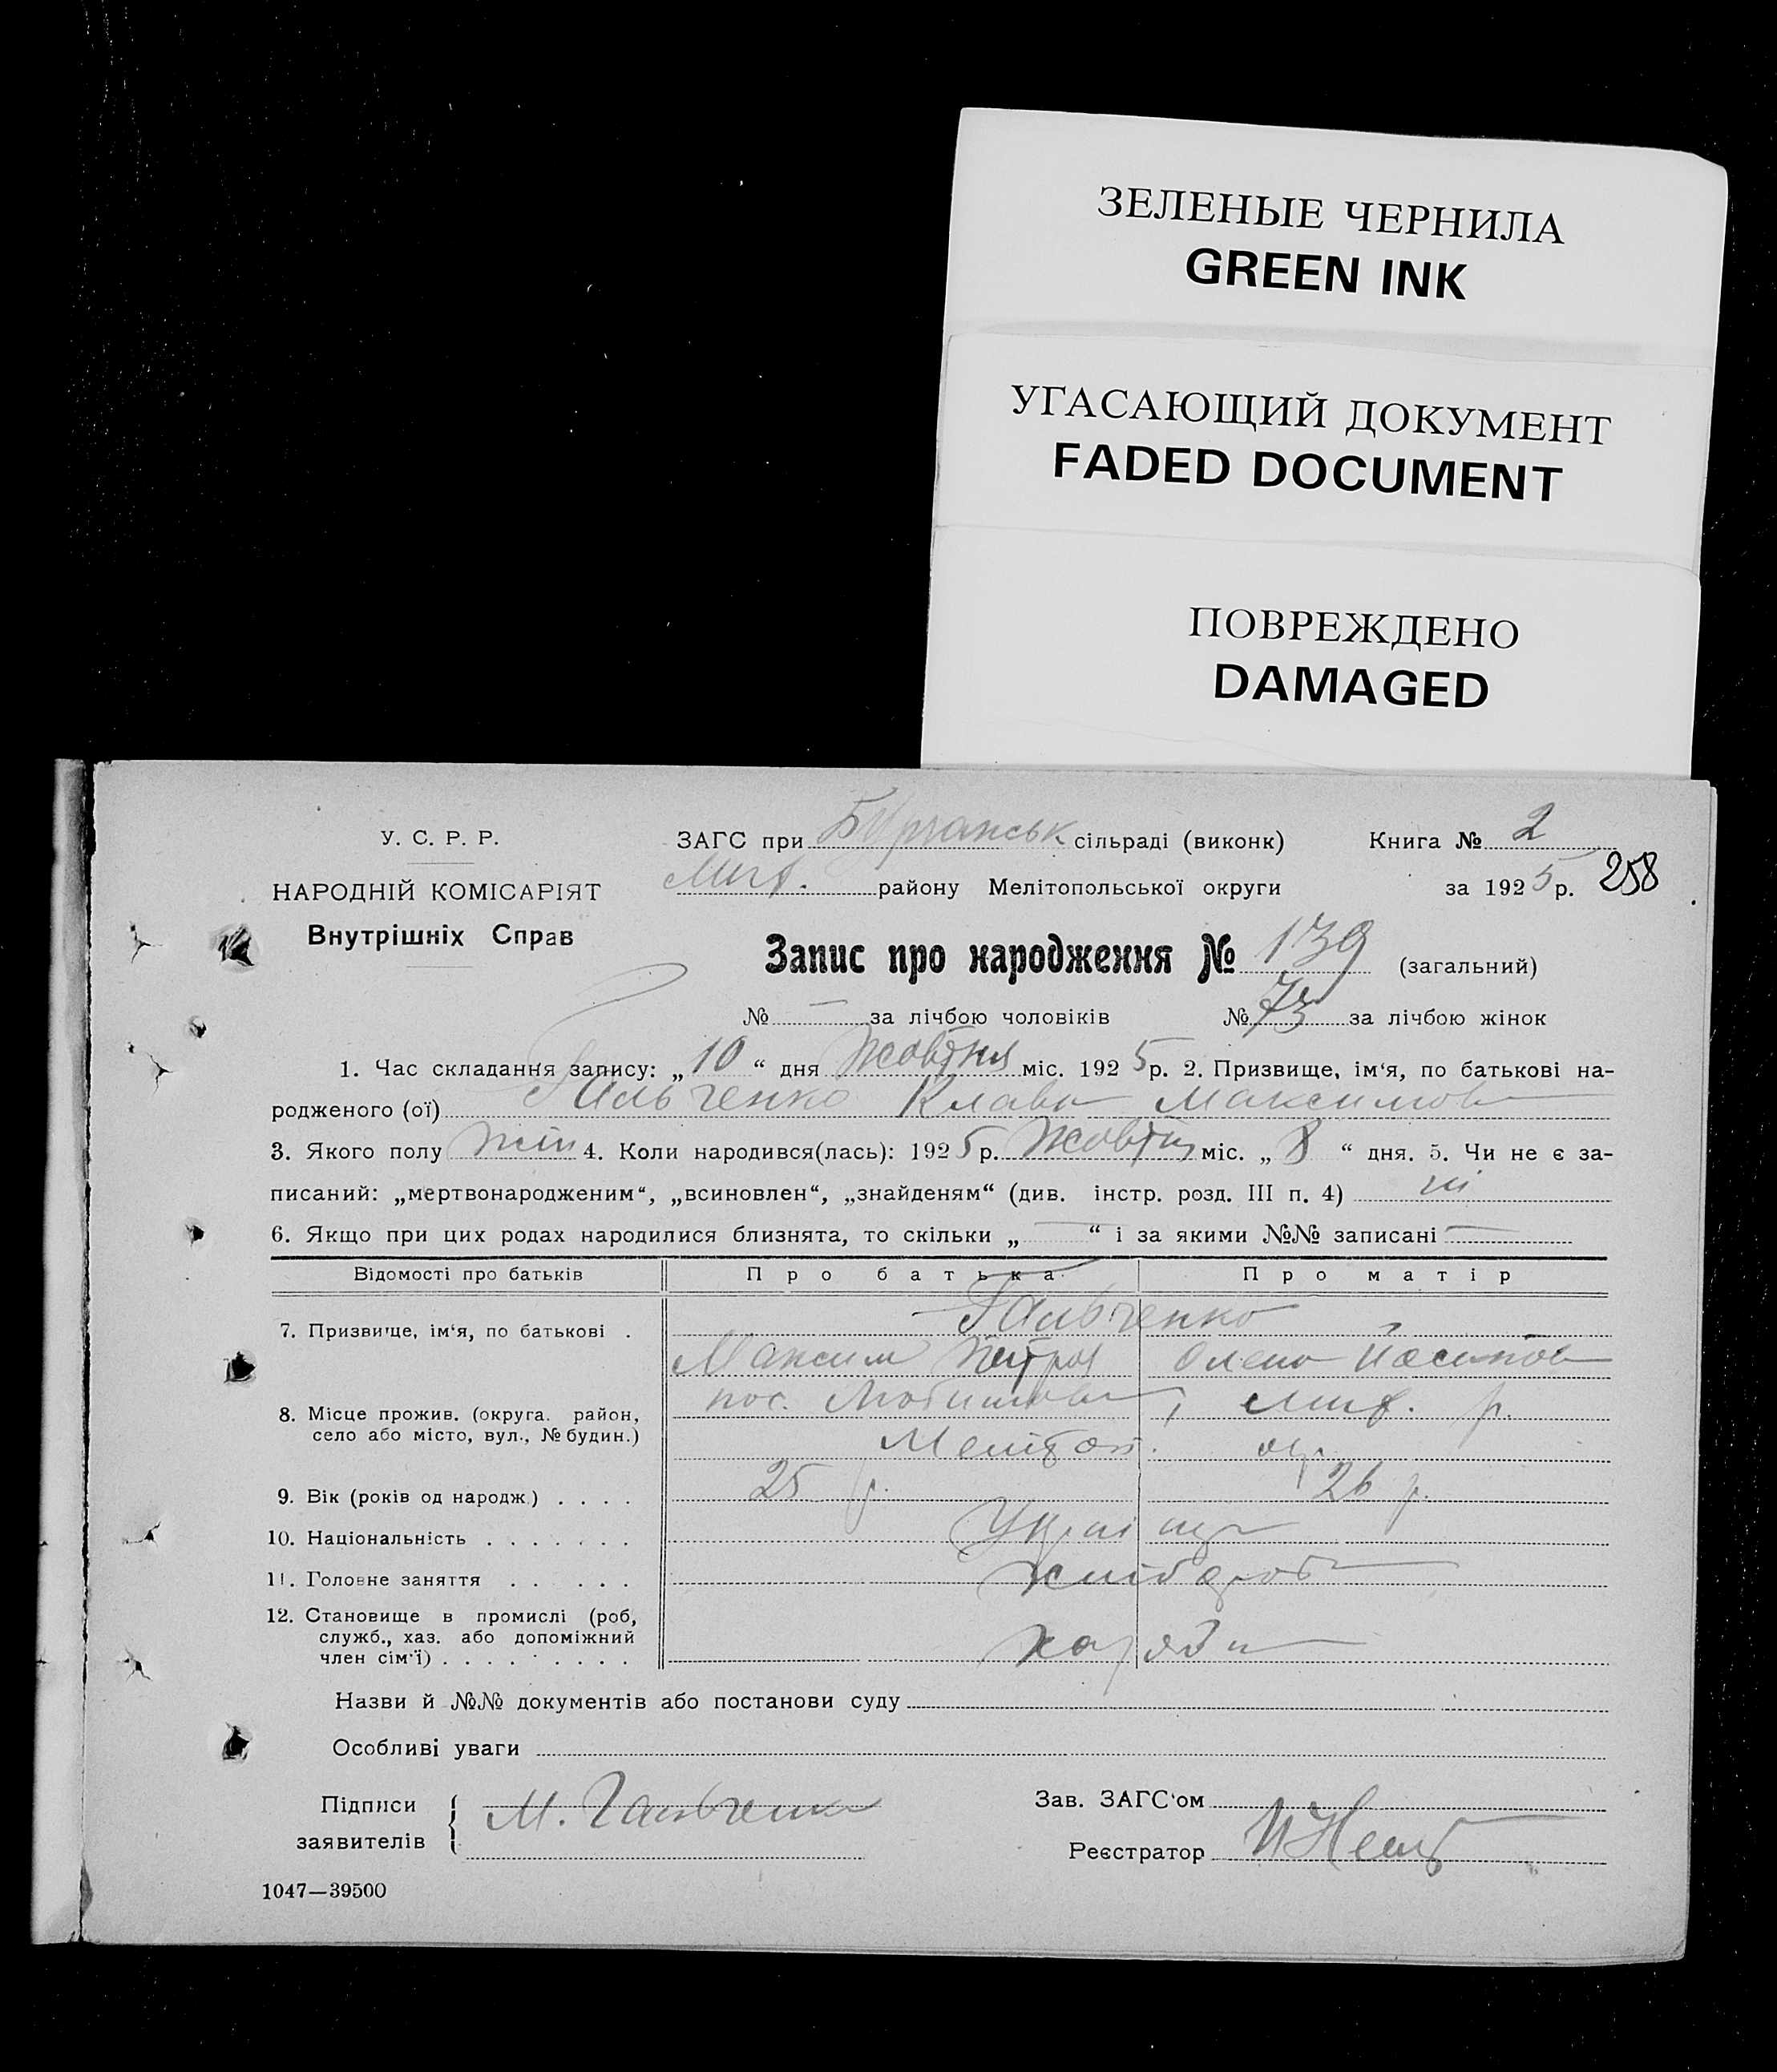 ЗЕЛЕНЫЕ ЧЕРНИЛА
GREEN INK
УГАСАЮЩИЙ ДОКУМЕНТ
FADED DOCUMENT
ПОВРЕЖДЕНО
DAMAGED
У. С. Р. Р.
НАРОДНІЙ КОМІСАРІЯТ
Внутрішніх Справ
ЗАГС при сільраді (виконк) Книга № 2
району Мелітопольської округи за 1925 р. 258
Запис про народження № 139 (загальний)
№ — за лічбою чоловіків № 73 за лічбою жінок
1. Час складання запису: „ 10 “ дня Жовтня міс. 1925 р. 2. Призвище, ім‘я, по батькові на-
родженого (ої) Гальченко Клава Максимов
3. Якого полу жін 4. Коли народився(лась): 1925 р. Жовтня міс. „ 8 “ дня. 5. Чи не є за-
писаний: „мертвонародженим“, „всиновлен“, „знайденям“ (див. інстр. розд. III п. 4) ні
6. Якщо при цих родах народилися близнята, то скільки „ — “ і за якими №№ записані —
Відомості про батьків Про батька Про матір
7. Призвище, ім‘я, по батькові . Гальченко
Максим Петров Олена Йосипов
8. Місце прожив. (округа. район, село або місто, вул., № будин.) пос. р.
Меліт. окр.
9. Вік (років од народж.) . . . . 25 р. 26 р.
10. Національність . . . . . . . Україн
11. Головне заняття . . . . . . хлібороб
12. Становище в промислі (роб,
служб., хаз. або допоміжний
член сім‘ї) . . . . . . . . .
Назви й №№ документів або постанови суду
Особливі уваги
Підписи заявителів М. Гальченко
Зав. ЗАГС‘ом
Реєстратор
1047—39500